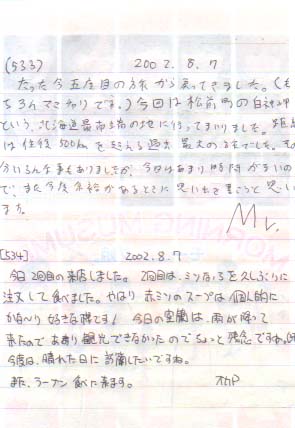 (533) 2002.8.7
たった今五度目の旅から戻ってきました。(も
ちろんママチャリです。)今回は松前町の白神岬
という、北海道最南端の地に行ってまいりました。距離
は往復500kmを超える過去最大のものでした。その
分いろんな事もありましたが、今日はあまり時間が多いの
で、また今度余裕があるときに思い出を書こうと思い
ます。
[534] 2002.8.7
今日2回目の来店しました。2回目は、ミソなっろを久しぶりに
注文して食べました。やはり赤ミソのスープは個人的に
かな〜り好きな味です! 今日の室蘭は、雨が降って
来たのであまり観光できなかったのでちょっと残念ですね。
今度は、晴れた日に訪蘭したいですね。
また、ラーメン食べに来ます。
MORNING MUSUM